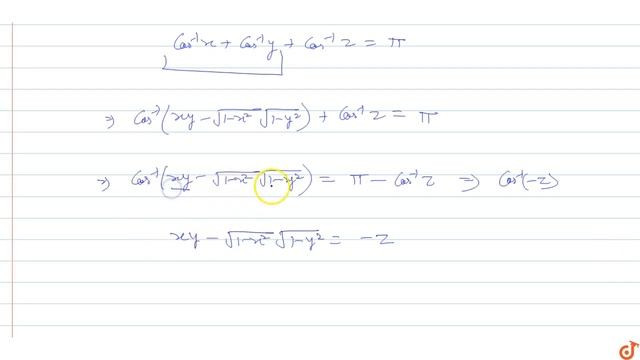 Cos⁻¹x + Cos⁻¹y + Cos⁻¹z = π
⇒ Cos⁻¹(xy − √1−x² √1−y²) + Cos⁻¹z = π
⇒ Cos⁻¹(xy − √1−x² √1−y²) = π − Cos⁻¹z ⇒ Cos⁻¹(−z)
xy − √1−x² √1−y² = −z